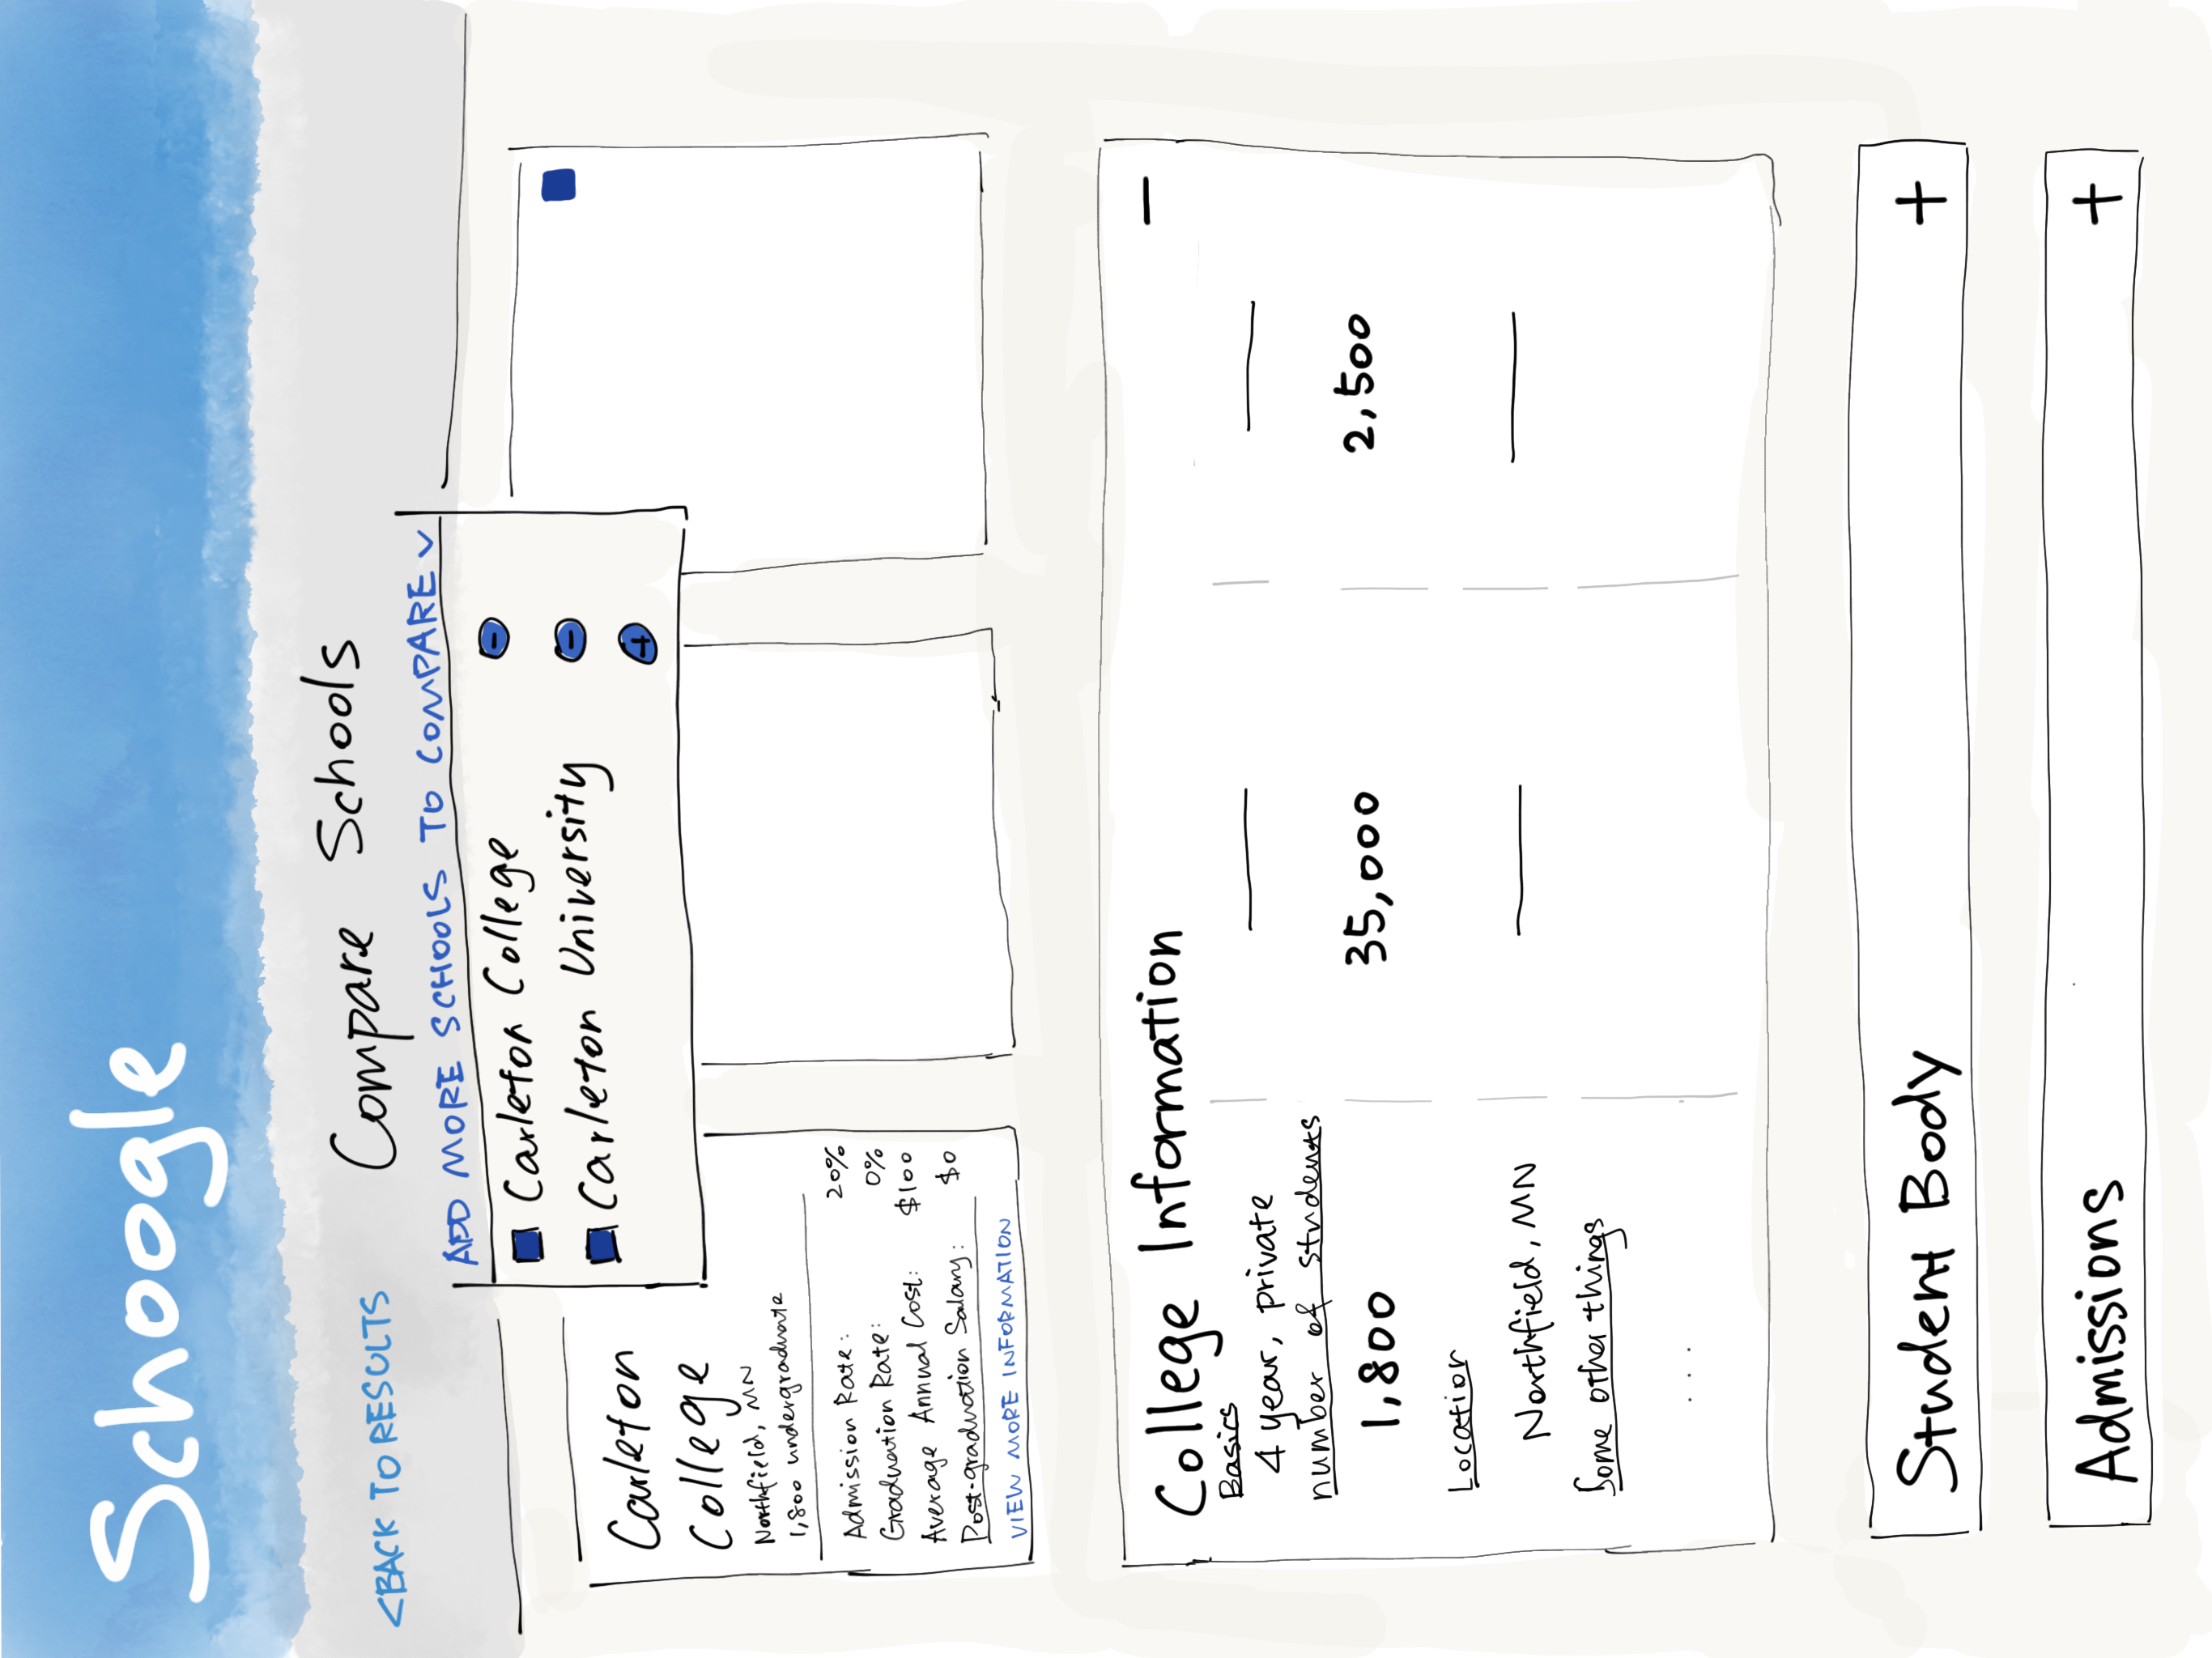 Schoogle
<BACK TO RESULTS
Compare Schools
ADD MORE SCHOOLS TO COMPARE ∨
Carleton College -
Carleton University -
+
Carleton
College
Northfield, MN
1,800 undergraduate
Admission Rate: 20%
Graduation Rate: 0%
Average Annual Cost: $100
Post-graduation Salary: $0
VIEW MORE INFORMATION
College Information -
Basics
4 year, private
number of students
1,800 35,000 2,500
Location
Northfield, MN
Some other things
....
Student Body +
Admissions +